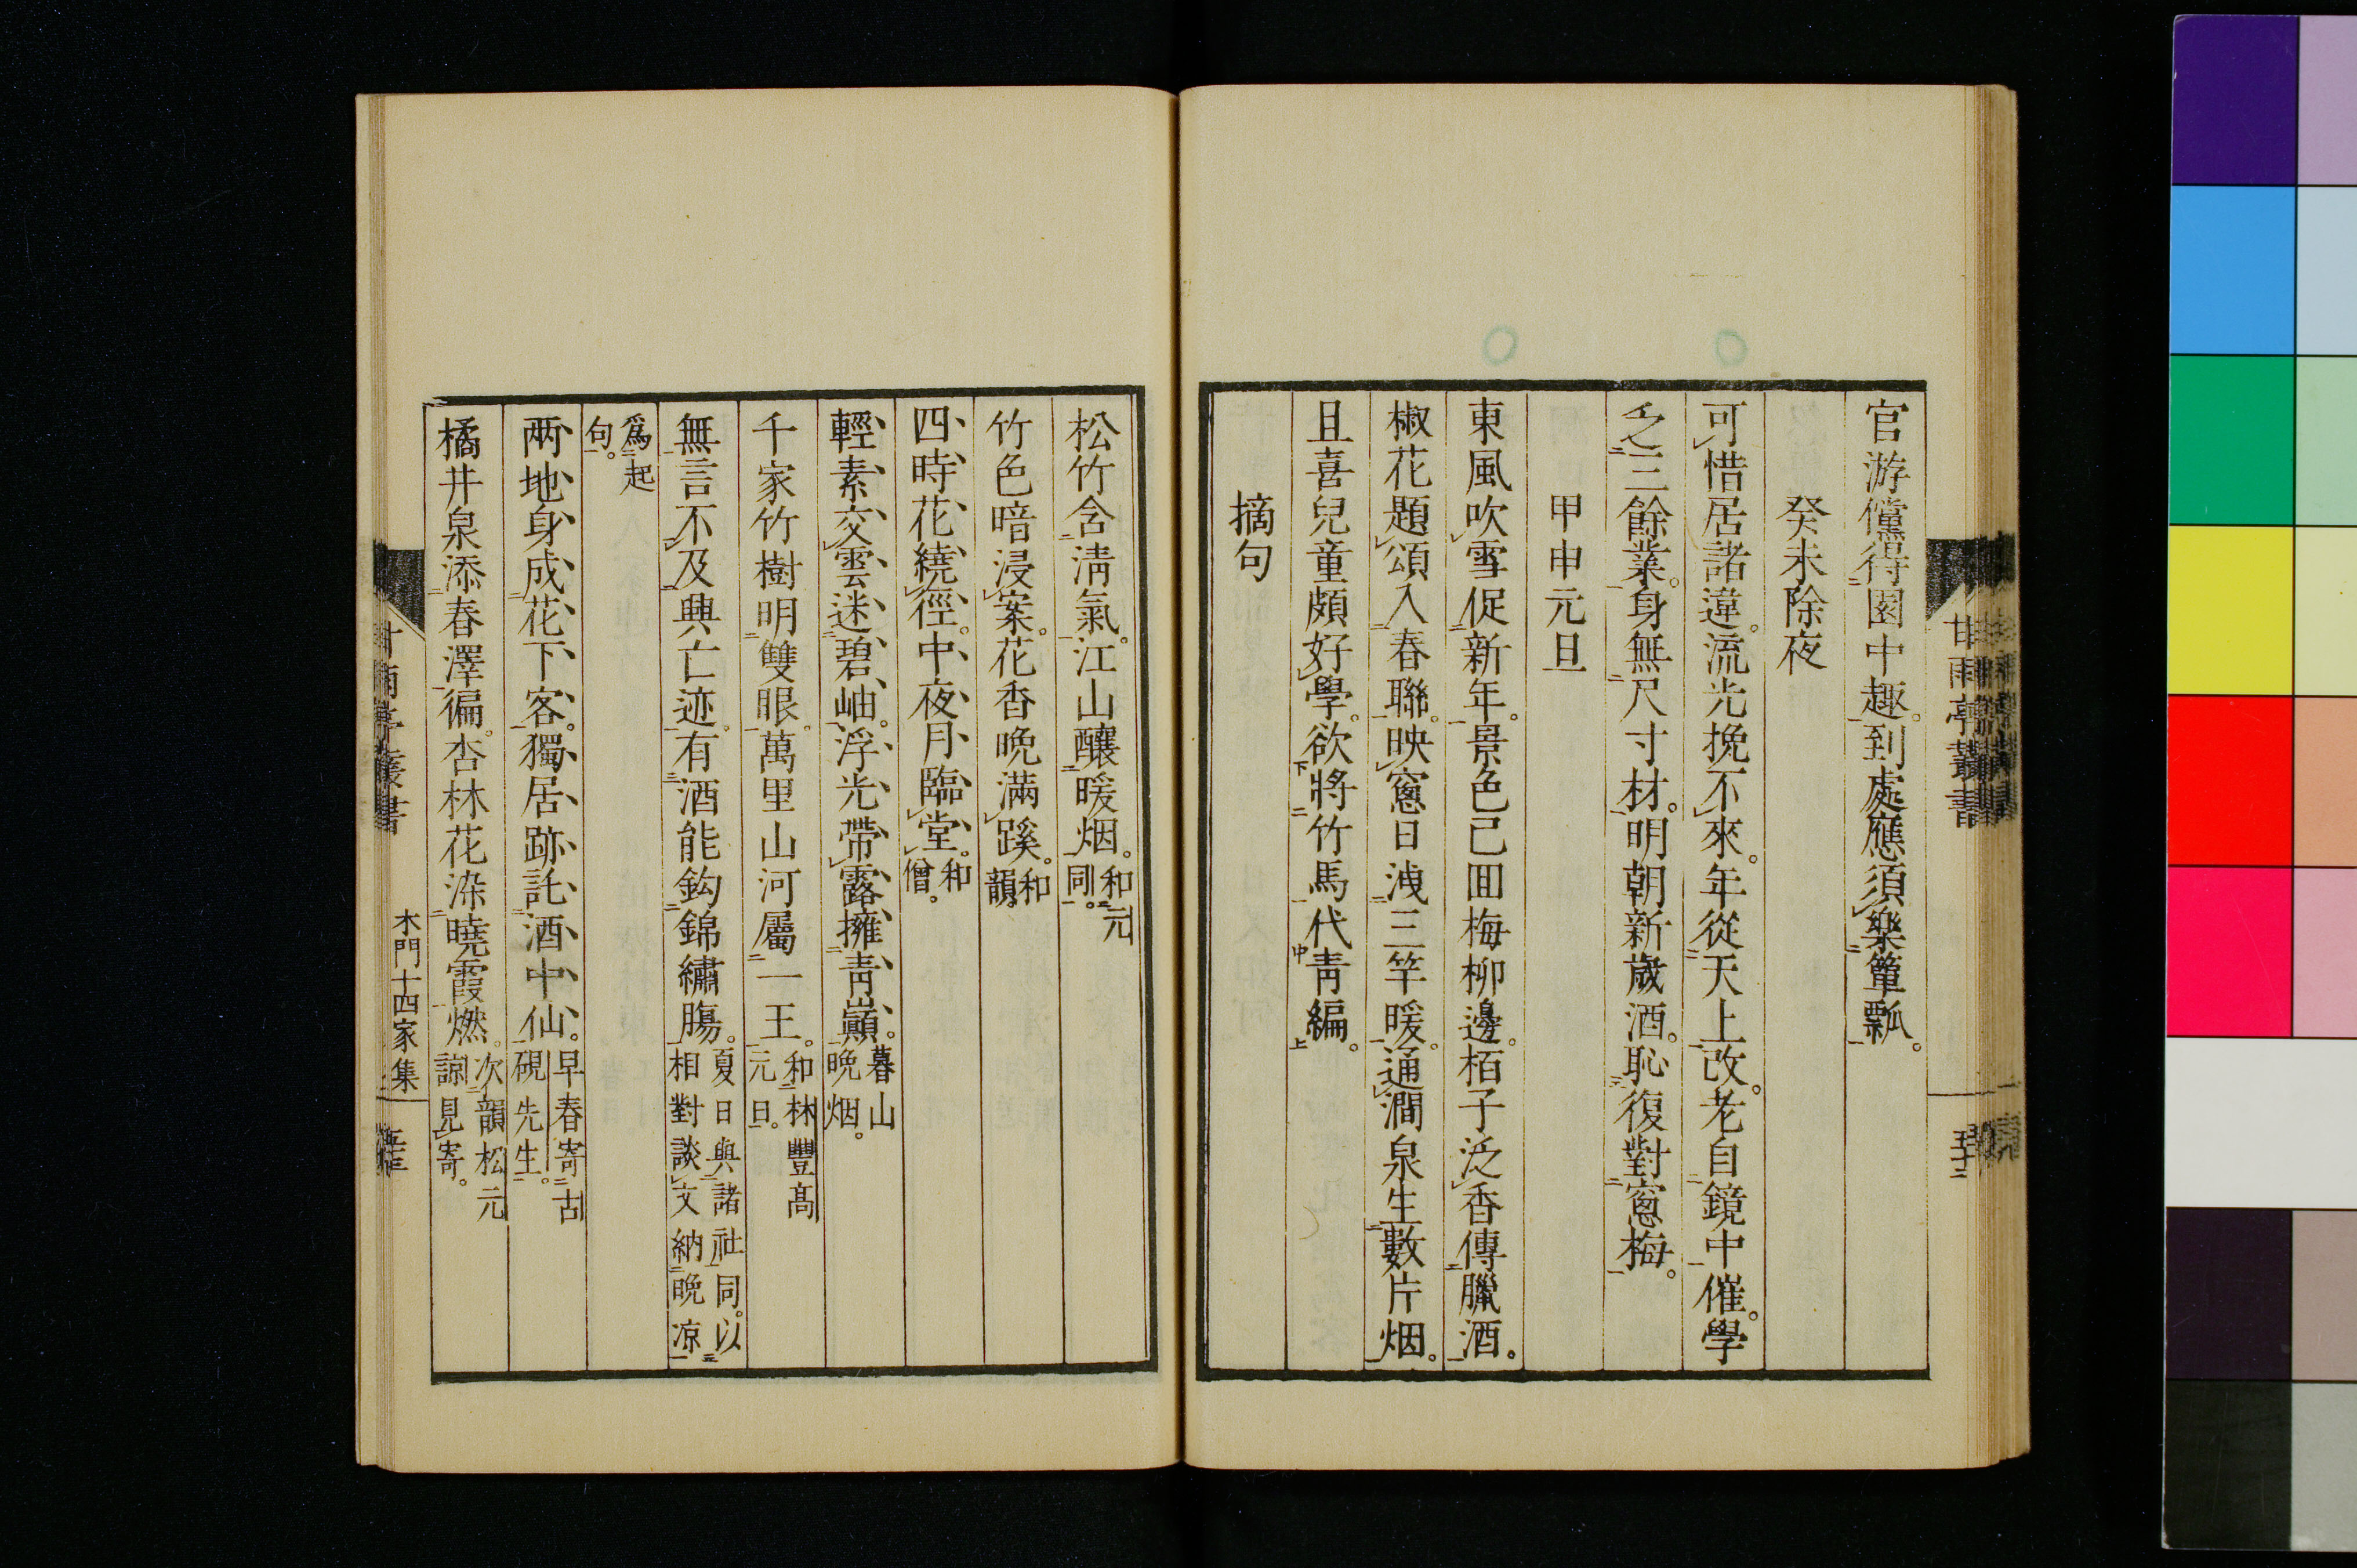 官游儻得園中趣。到處應須樂簞瓢。
癸未除夜
可惜居諸違。流光挽不來。年從天上改。老自鏡中催。學
乏三餘業。身無尺寸材。明朝新歲酒。恥復對窻梅。
甲申元旦
東風吹雪促新年。景色已囬梅柳邊。栢子泛香傳臘酒。
椒花題頌入春聯。映窻日洩三竿暖。通澗泉生數片烟。
且喜兒童頗好學。欲將竹馬代靑編。
摘句
甘雨亭叢書
松竹含淸氣。江山釀暖烟。和元同。
竹色暗浸案。花香晩滿蹊。和韻。
四時花繞徑。中夜月臨堂。和僧。
輕素交雲迷碧岫。浮光帶露擁靑巓。暮山晩烟。
千家竹樹明雙眼。萬里山河屬一王。和林豐高元日。
無言不及興亡迹。有酒能鈎錦繡膓。夏日與諸社同。以相對談文納晩凉
爲起句。
兩地身成花下客。獨居跡託酒中仙。早春寄古硯先生。
橘井泉添春澤徧。杏林花染曉霞燃。次韻松元諒見寄。
木門十四家集